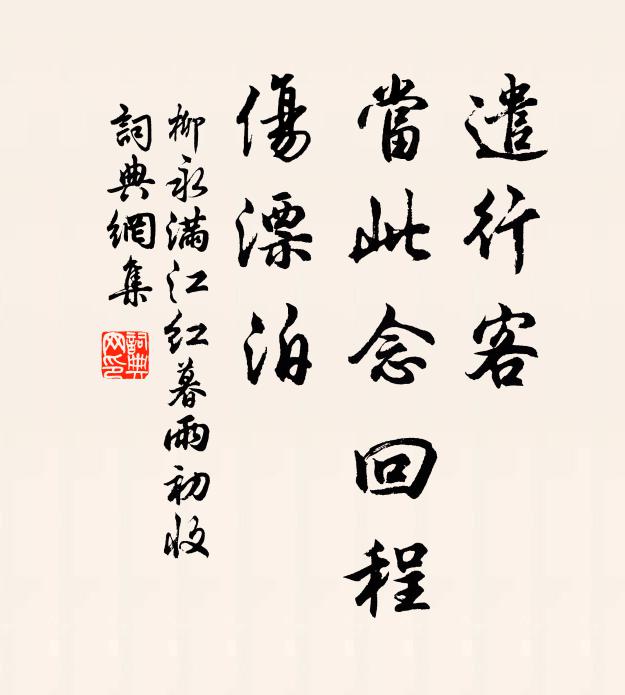 遣行客
當此念回程
傷漂泊
柳永满江红暮雨初收
詞典網集
詞典网印